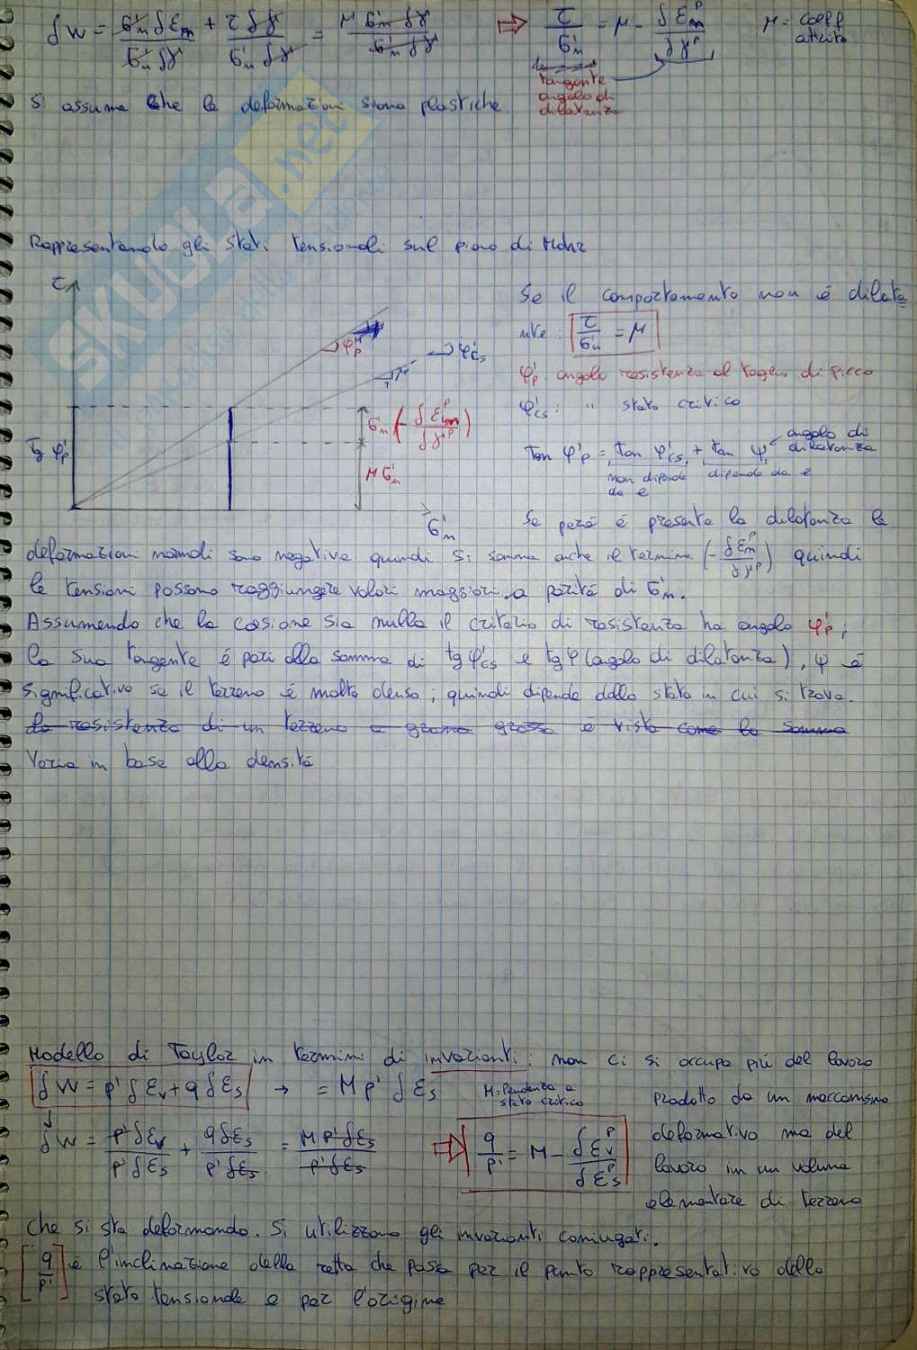 δW = σ'n δεn / σ'n δγ + τ δγ / σ'n δγ = μ σ'n δγ / σ'n δγ ⇒ τ / σ'n = μ - δεn^p / δγ^p μ = coeff attrito
tangente angolo di dilatanza
Si assume che le deformazioni siano plastiche
SKUOLA.net
Rappresentando gli stati tensionali sul piano di Mohr
τ
φ'p
φ'cs
μ
tg φ'p
σ'n (- δεn^p / δγ^p)
μ σ'n
σ'n
Se il comportamento non è dilata
nte: τ / σ'n = μ
φ'p angolo resistenza al taglio di picco
φ'cs: " stato critico
Tan φ'p = tan φ'cs + tan ψ angolo di dilatanza
non dipende da e dipende da e
Se però è presente la dilatanza le
deformazioni normali sono negative quindi si somma anche il termine (- δεn^p / δγ^p) quindi
le tensioni possono raggiungere valori maggiori a parità di σ'n.
Assumendo che la coesione sia nulla il criterio di resistenza ha angolo φ'p;
la sua tangente è pari alla somma di tg φ'cs e tg ψ (agolo di dilatanza), ψ è
significativo se il terreno è molto denso; quindi dipende dallo stato in cui si trova.
la resistenza di un terreno a grana grossa è vista come la somma
Varia in base alla densità
Modello di Taylor in termini di invarianti: non ci si occupa più del lavoro
δW = p' δεv + q δεs → = M p' δεs M: Pendenza a stato critico prodotto da un meccanismo
δW = p' δεv / p' δεs + q δεs / p' δεs = M p' δεs / p' δεs ⇒ q / p' = M - δεv^p / δεs^p deformativo ma del
lavoro in un volume
elementare di terreno
che si sta deformando. Si utilizzano gli invarianti coniugati.
[q / p'] è l'inclinazione della retta che passa per il punto rappresentativo dello
stato tensionale e per l'origine